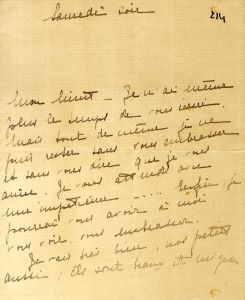 Samedi soir
214
Mon Minet — Je n'ai même
plus le temps de vous écrire.
Mais tout de même je ne
puis rester sans vous embrasser
et sans vous dire que je vous
aime. Je vous attends avec
une impatience ..... Enfin, je
pourrai vous avoir à moi,
vous voir, vous embrasser.
Je vais très bien, nos petits
aussi, Ils sont beaux et